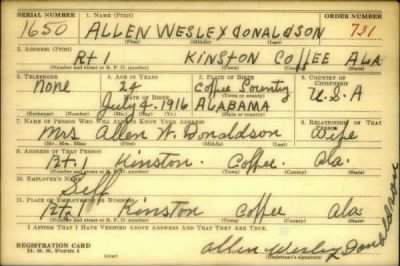 SERIAL NUMBER 1. NAME (Print) ORDER NUMBER
1650 ALLEN WESLEY DONALDSON 731
(First) (Middle) (Last)
2. ADDRESS (Print)
Rt 1 KINSTON COFFEE ALA
(Number and street or R. F. D. number) (Town) (County) (State)
3. TELEPHONE 4. AGE IN YEARS 5. PLACE OF BIRTH 6. COUNTRY OF CITIZENSHIP
None 24 Coffee County U.S.A
DATE OF BIRTH (Town or county)
July 4-1916 ALABAMA
(Exchange) (Number) (Mo.) (Day) (Yr.) (State or country)
7. NAME OF PERSON WHO WILL ALWAYS KNOW YOUR ADDRESS 8. RELATIONSHIP OF THAT PERSON
Mrs Allen W. Donaldson Wife
(Mr., Mrs., Miss) (First) (Middle) (Last)
9. ADDRESS OF THAT PERSON
Rt. 1 Kinston. Coffee. Ala.
(Number and street or R. F. D. number) (Town) (County) (State)
10. EMPLOYER'S NAME
Self
11. PLACE OF EMPLOYMENT OR BUSINESS
Rt. 1 Kinston Coffee Ala.
(Number and street or R. F. D. number) (Town) (County) (State)
I AFFIRM THAT I HAVE VERIFIED ABOVE ANSWERS AND THAT THEY ARE TRUE.
REGISTRATION CARD
D. S. S. Form 1
Allen Wesley Donaldson
(Registrant's signature)